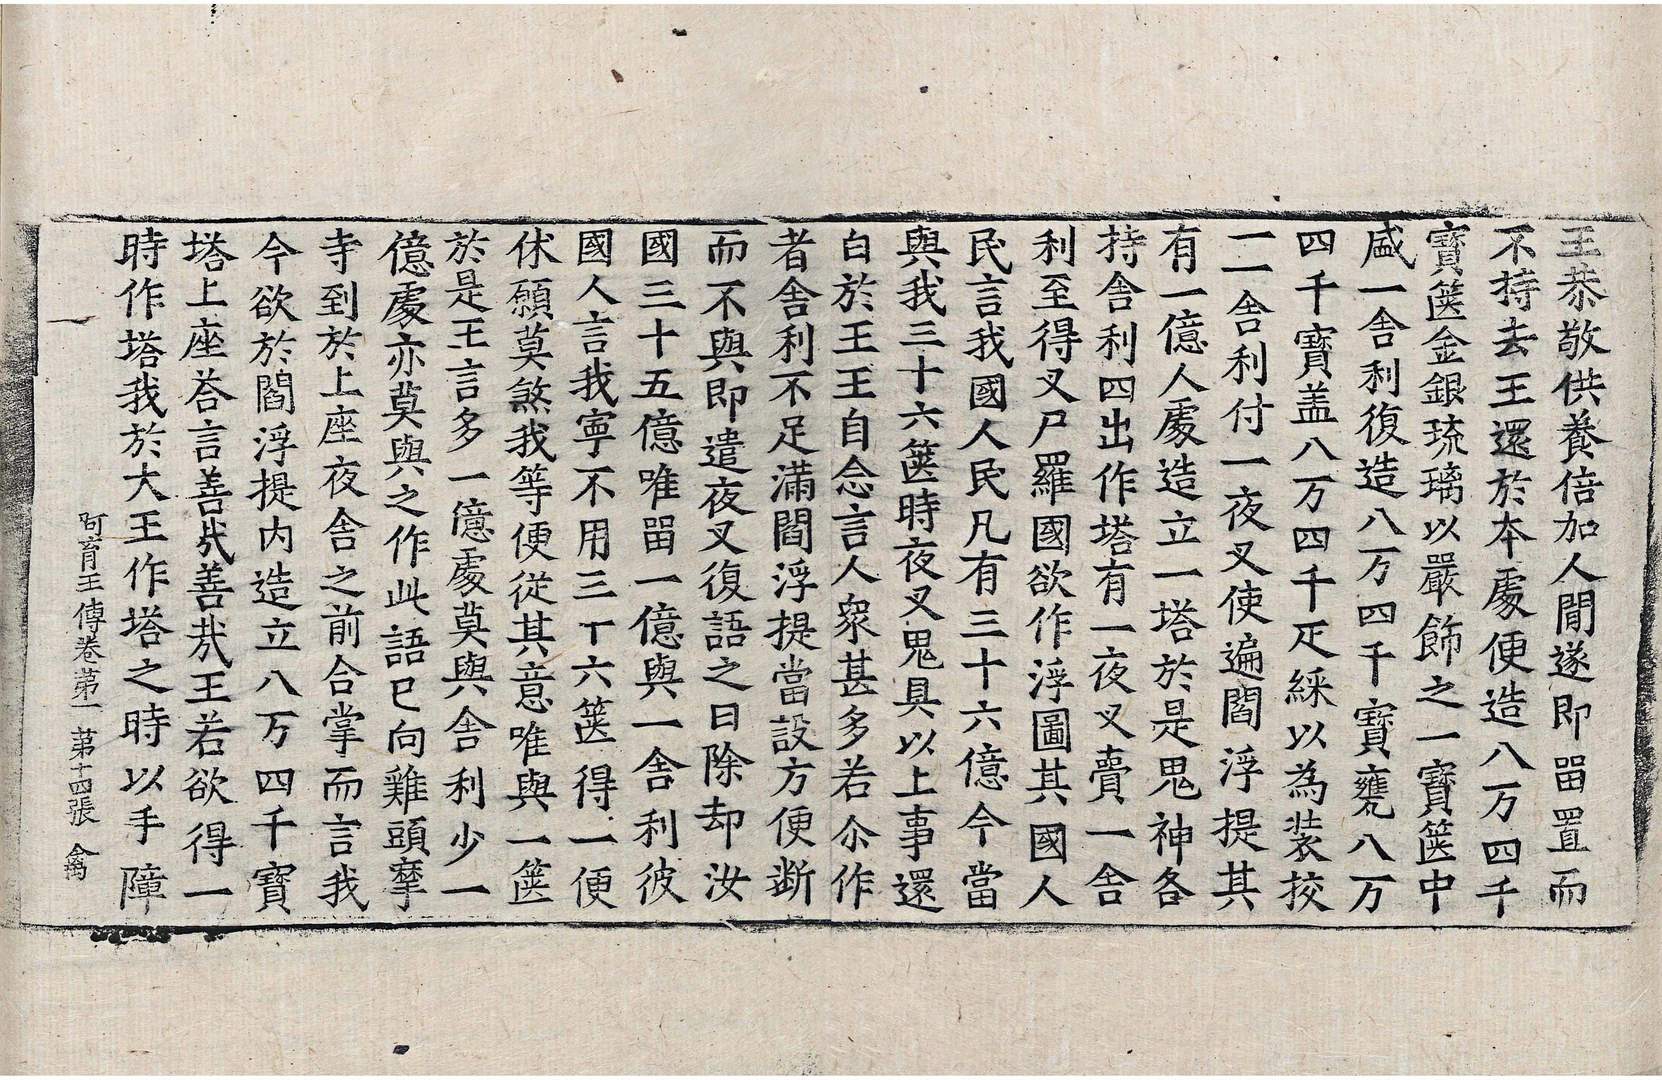 王恭敬供養倍加人閒遂即畱置而
不持去王還於本處便造八万四千
寶篋金銀琉璃以嚴飾之一寶篋中
盛一舍利復造八万四千寶甕八万
四千寶盖八万四千疋綵以為裝挍
一一舍利付一夜叉使遍閻浮提其
有一億人處造立一塔於是鬼神各
持舍利四出作塔有一夜叉賣一舍
利至得叉尸羅國欲作浮圖其國人
民言我國人民凡有三十六億今當
與我三十六篋時夜叉鬼具以上事還
白於王王自念言人衆甚多若尒作
者舍利不足滿閻浮提當設方便断
而不與即遣夜叉復語之曰除却汝
國三十五億唯畱一億與一舍利彼
國人言我寧不用三十六篋得一便
休願莫煞我等便從其意唯與一篋
於是王言多一億處莫與舍利少一
億處亦莫與之作此語已向雞頭摩
寺到於上座夜舍之前合掌而言我
今欲於閻浮提内造立八万四千寶
塔上座荅言善㢤善㢤王若欲得一
時作塔我於大王作塔之時以手障
阿育王傳卷苐一 苐十四張 禽